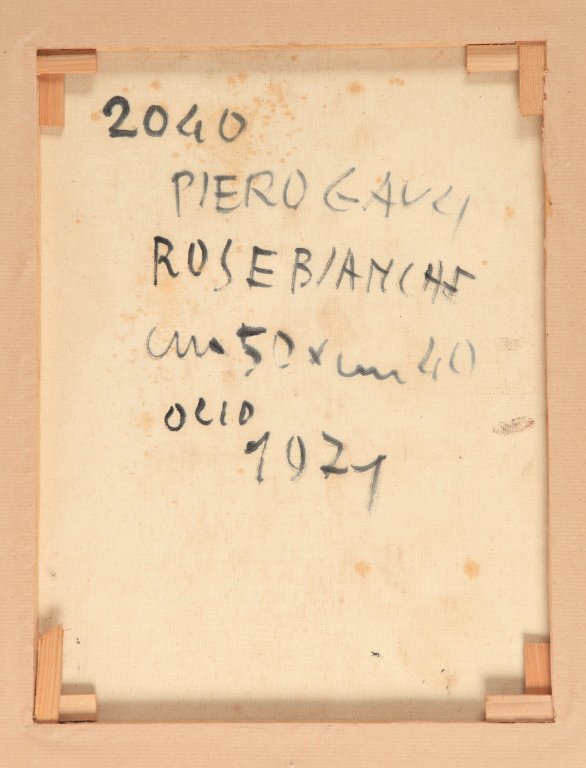 2040
PIERO GAULI
ROSE BIANCHE
cm 50 x cm 40
OLIO
1971